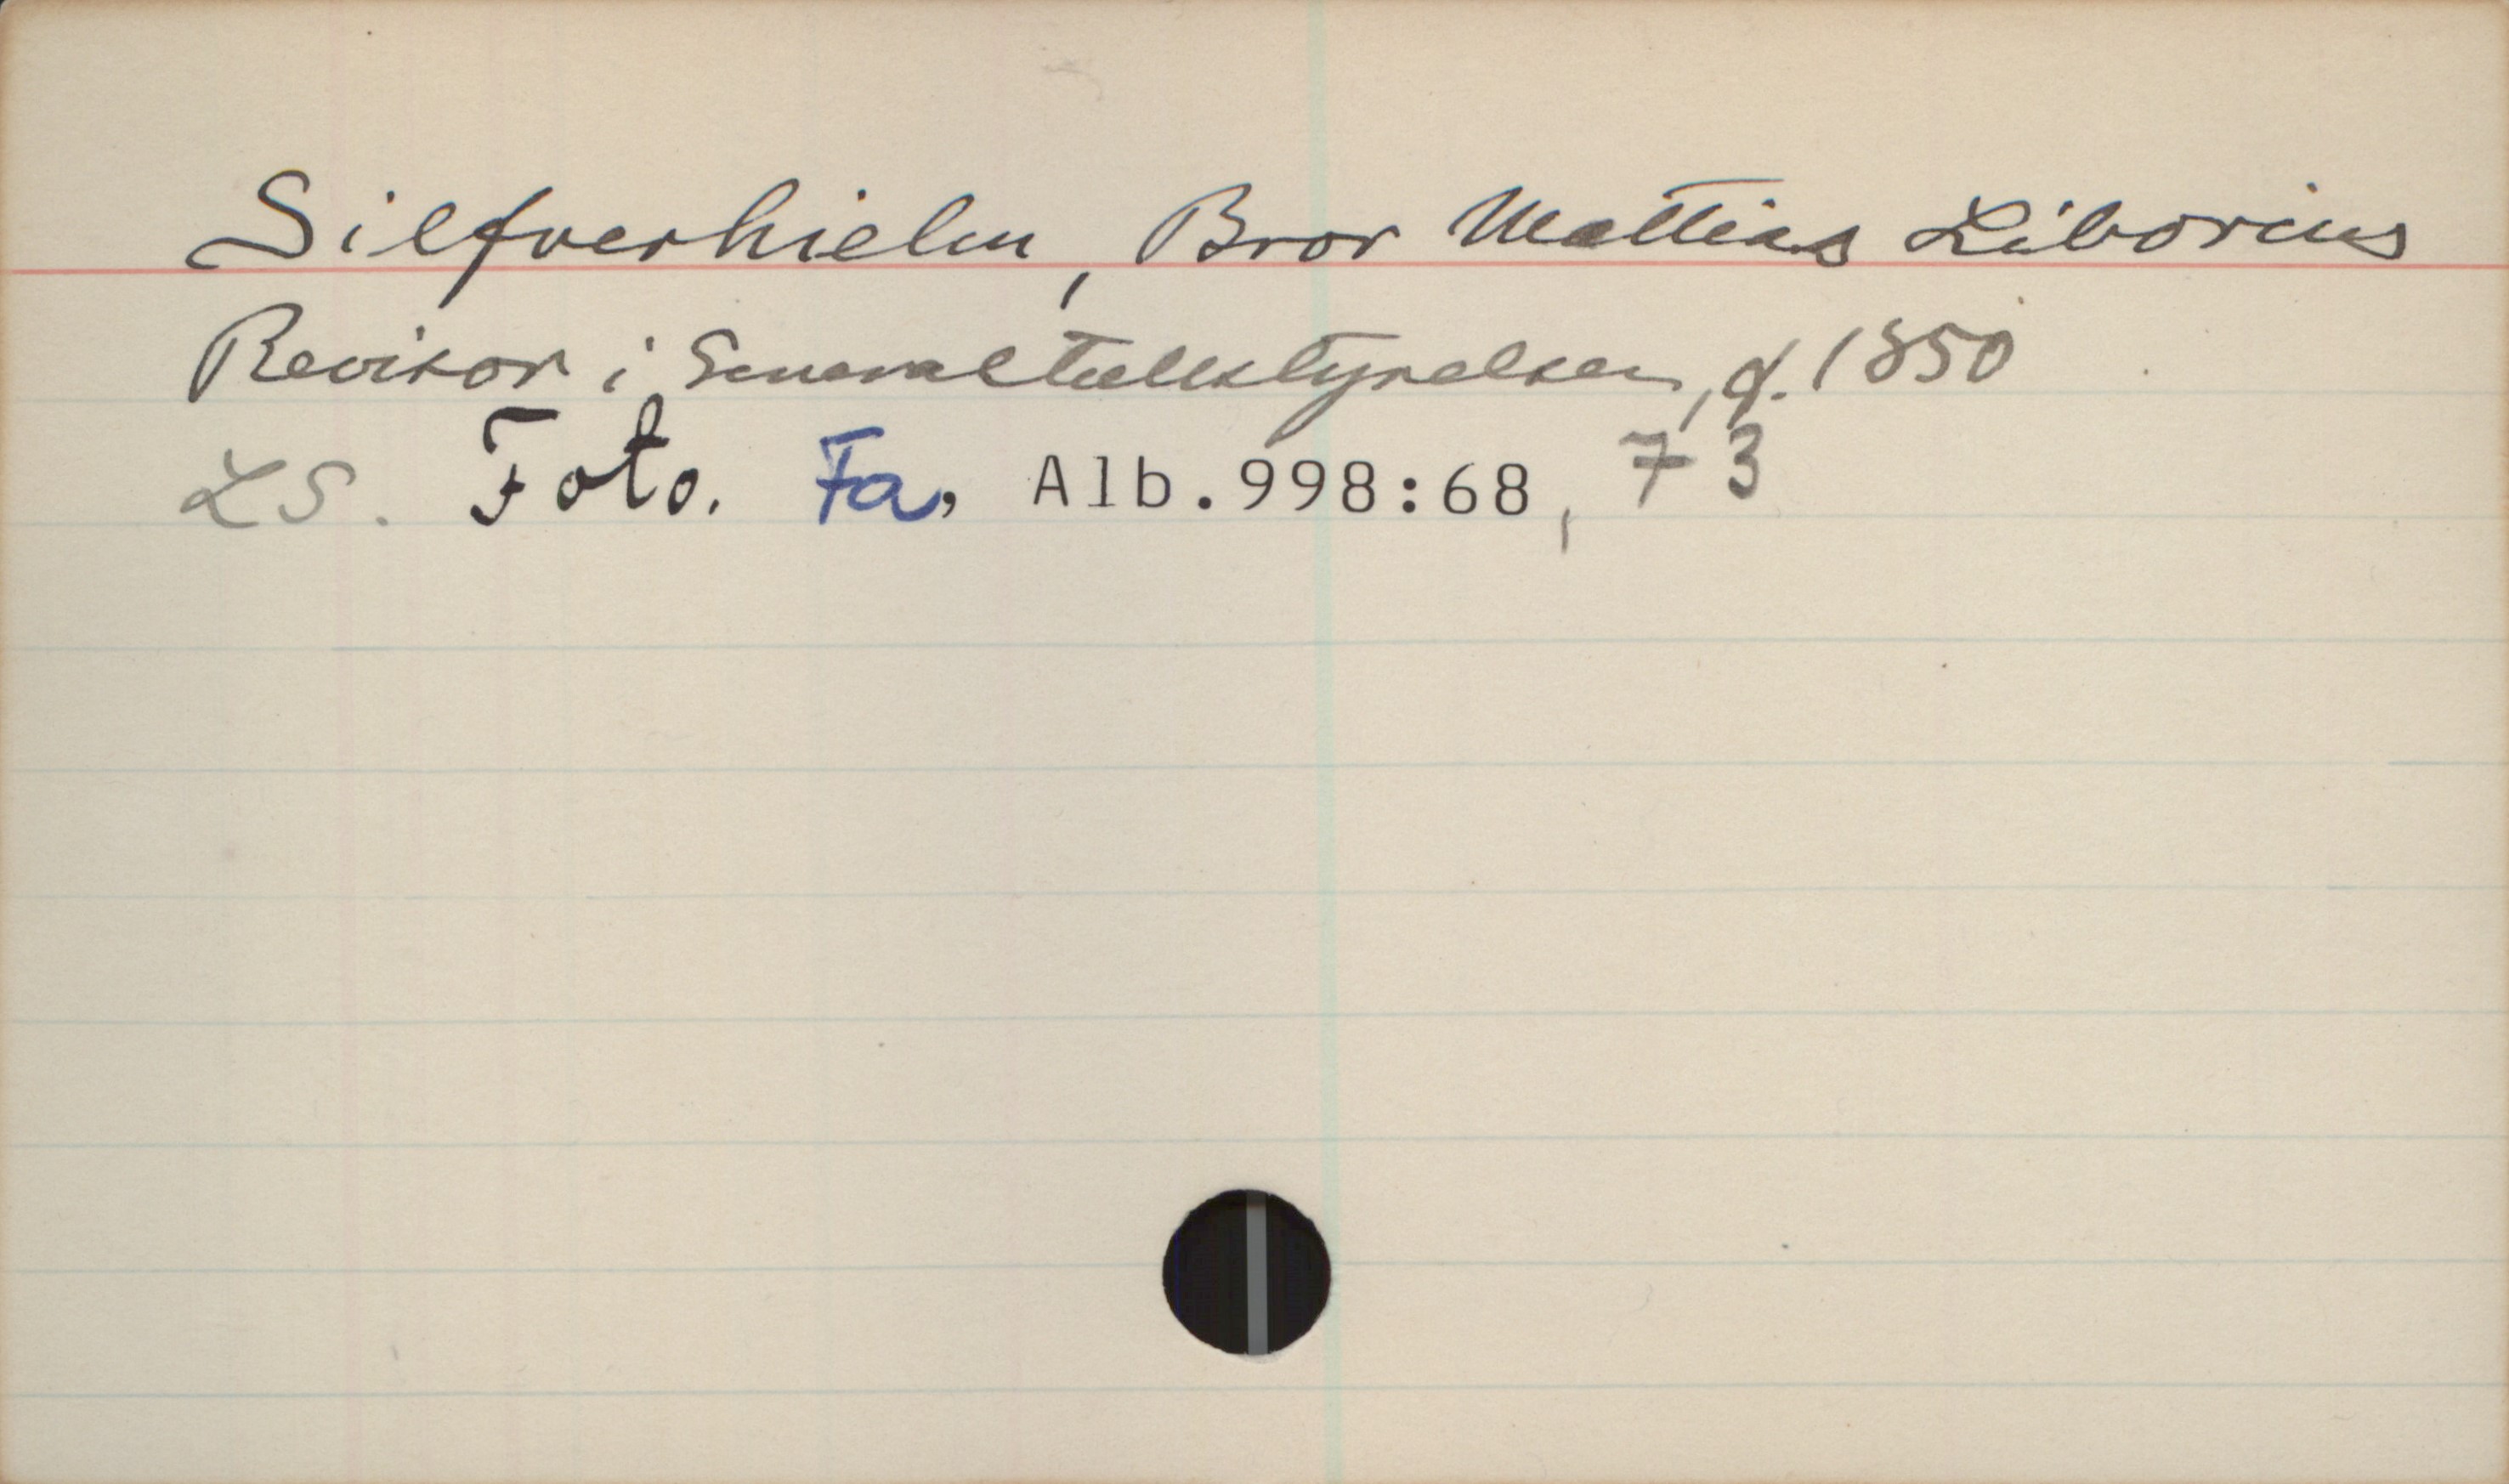 Silfverhielm, Bror Mattias Liborius
Revisor i Generaltullstyrelsen, f. 1850
LS. Foto. Fa, Alb.998:68, 73